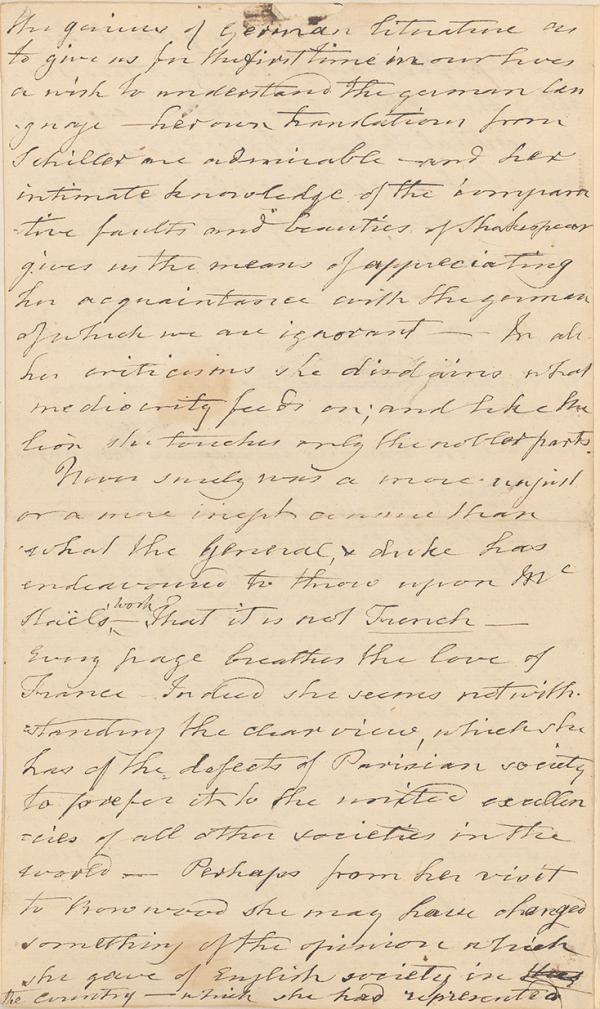 the genius of German literature as
to give us for the first time in our lives
a wish to understand the german lan
-guage - her own translations from
Schiller are admirable - and her
intimate knowledge of the compara
-tive faults and beauties of Shakespear
gives us the means of appreciating
her acquaintance with the german
of which we are ignorant — In all
her criticisms she disdains what
mediocrity feeds on; and like the
lion she touches only the nobler parts.
Never surely was a more unjust
or a more inept censure than
what the General, & duke has
endeavoured to throw upon Me
Staëls work - That it is not French —
Every page breathes the love of
France - Indeed she seems notwith-
=standing the clear view, which she
has of the defects of Parisian society
to prefer it to the united excellen
=cies of all other societies in the
world — Perhaps from her visit
to Bowood she may have changed
something of the opinion which
she gave of English society in
the country - which she had represented